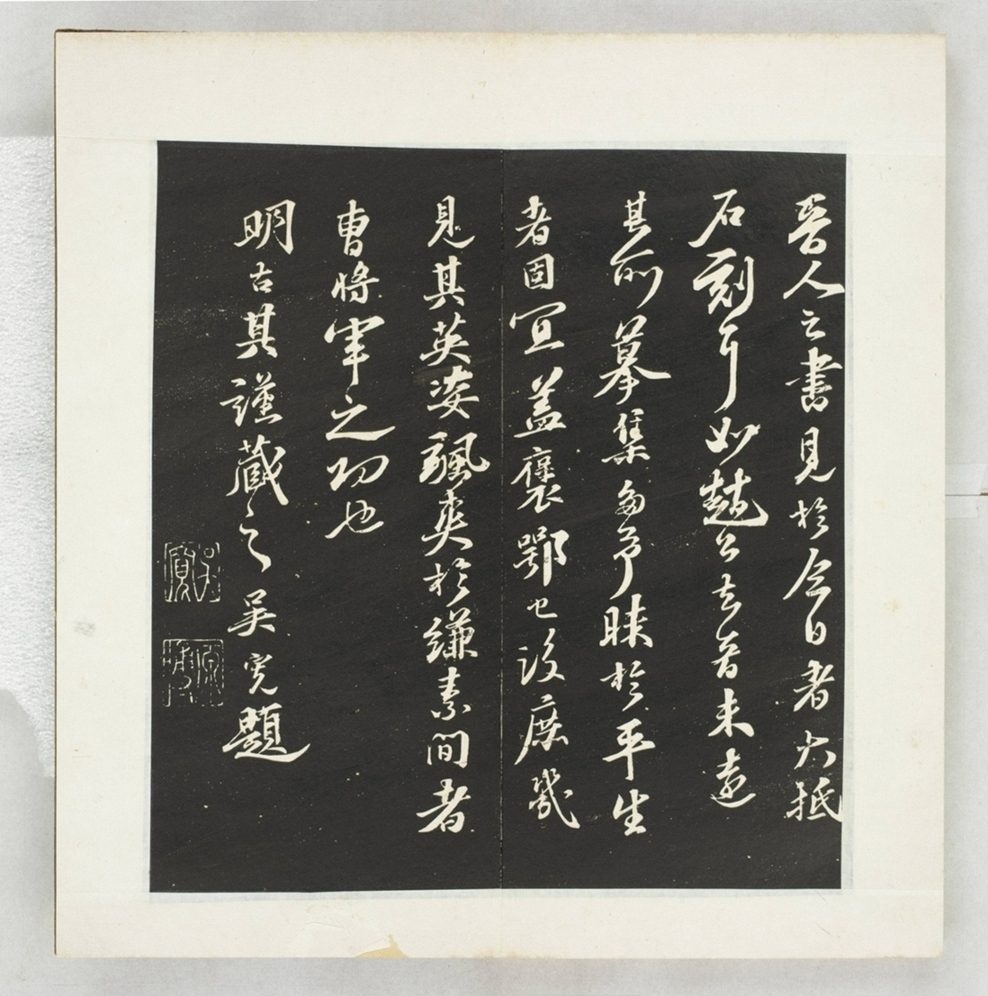 晉人之書見於今日者大抵
石刻耳如趙公去晉未遠
其所摹集多爭昧於平生
者固宜盖褒鄂已没庶幾
見其英姿颯爽於縑素間者
曹將軍之功也
明古其謹藏之吳寬題
原博